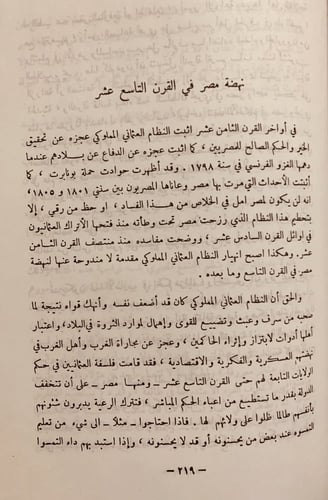 نهضة مصر في القرن التاسع عشر
في أواخر القرن الثامن عشر اثبت النظام العثماني المملوكي عجزه عن تحقيق
الخير والحكم الصالح للمصريين ، كما اثبت عجزه عن الدفاع عن بلادهم عندما
دهمها الغزو الفرنسي في سنة ١٧٩٨ . وقد أظهرت حوادث حملة بونابرت ، كما
أثبتت الأحداث التي مرت بها مصر وعاناها المصريون بين سنتي ١٨٠١ و ١٨٠٥ ،
انه لن يكون لمصر امل في الخلاص من هذا الفساد ، او حظ من رقي ، إلا
بتحطم هذا النظام الذي رزحت مصر تحت وطأته منذ فتحها الأتراك العثمانيون
في اوائل القرن السادس عشر ، ووضحت مفاسده منذ منتصف القرن الثامن
عشر. وهكذا اصبح انهيار النظام العثماني المملوكي مقدمة لا مندوحة عنها لنهضة
مصر في القرن التاسع وما بعده .
والحق أن النظام العثماني المملوكي كان قد أضعف نفسه وأنهك قواه نتيجة لما
صحبه من سرف وعبث وتضييع للقوى وإهمال لموارد الثروة في البلاد، واعتبار
أهلها أدوات لابتزاز وإثراء الحاكمين ، وعجز عن مجاراة الغرب وأهل الغرب في
نهضتهم العسكرية والفكرية والاقتصادية . فقد قامت فلسفة العثمانيين في حكم
الولايات التابعة لهم حتى القرن التاسع عشر – ومنها مصر – على أن تتخفف
الدولة بقدر ما تستطيع من اعباء الحكم المباشر ، فتترك الرعية يدبرون شئونهم
بأنفسهم طالما ظلوا على ولائهم لها . فاذا احتاجوا – مثلاً – الى شيء من تعليم
التمسوه عند بعض من يحسنونه أو قد لا يحسنونه ، وإذا استبد بهم داء التمسوا
– ٢١٩ –